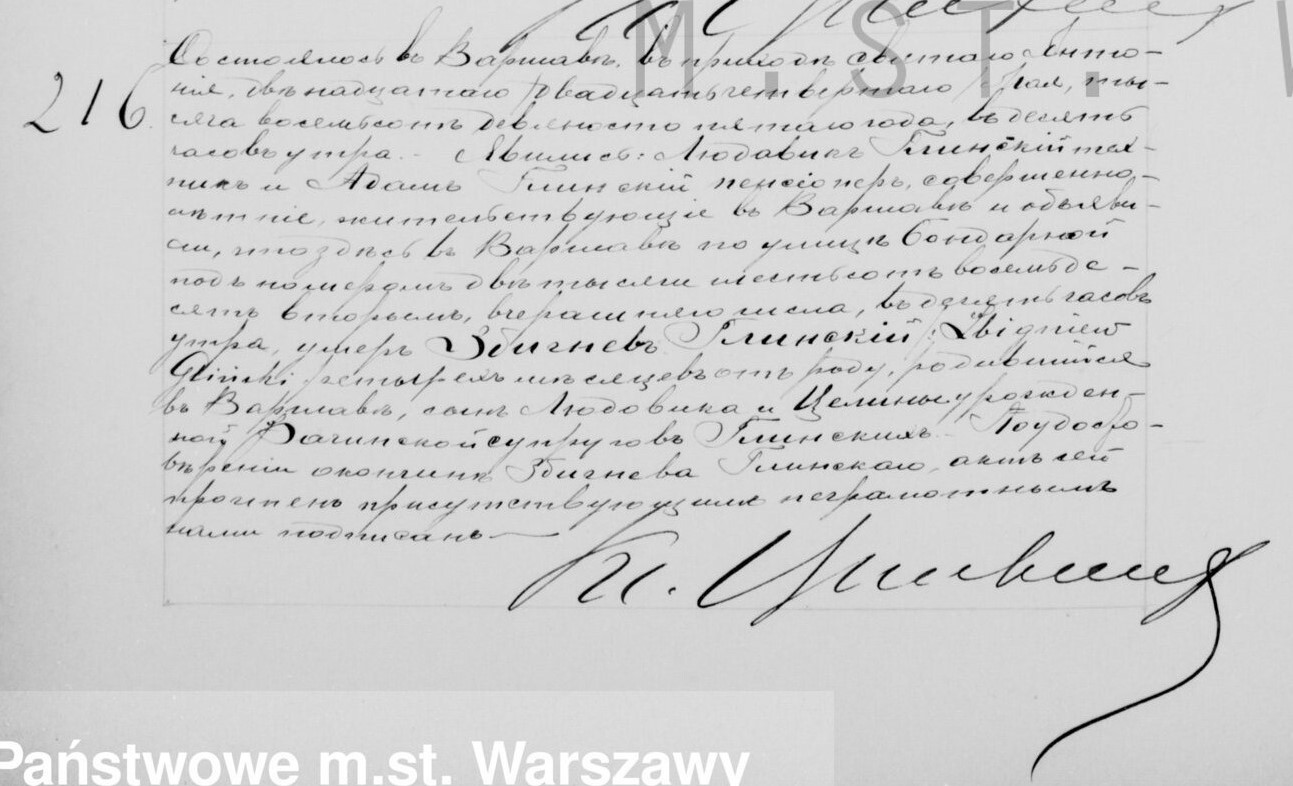 М. S T. W
216.
Состоялось въ Варшавѣ, въ приходѣ святаго Анто-
нія, двѣнадцатаго /двадцать четвертаго/ Мая, ты-
сяча восемьсотъ девяносто пятаго года, въ десять
часовъ утра. – Явились: Людовикъ Глинскій тех-
никъ и Адамъ Глинскій пенсіонеръ, совершенно-
лѣтніе, жительствующіе въ Варшавѣ и объяви-
ли, что здѣсь въ Варшавѣ по улицѣ Бондарной
подъ номеромъ двѣ тысячи шестьсотъ восемьде-
сятъ вторымъ, вчерашняго числа, въ часовъ
утра, умеръ Збигневъ Глинскій /: Zbigniew
Gliński :/ четырехъ мѣсяцевъ отъ роду, родившійся
въ Варшавѣ, сынъ Людовика и Целины урожден-
ной супруговъ Глинскихъ. – По удосто-
вѣреніи о кончинѣ Збигнева Глинскаго, актъ сей
прочтенъ присутствующимъ неграмотнымъ
нами подписанъ —
Państwowe m.st. Warszawy